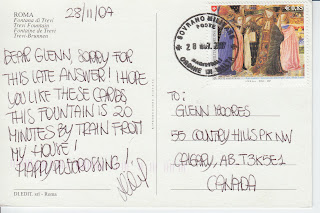 ROMA
Fontana di Trevi
Trevi Fountain
Fontaine de Trevi
Trevi-Brunnen
28/11/07
DEAR GLENN, SORRY FOR
THIS LATE ANSWER! I HOPE
YOU LIKE THESE CARDS
THIS FOUNTAIN IS 20
MINUTES BY TRAIN FROM
MY HOUSE!
HAPPY POSTCROSSING!
DI.EDIT. srl - Roma
POSTE
TO:
GLENN MOORES
55 COUNTRY HILLS PK NW
CALGARY, AB. T3K5E1
CANADA